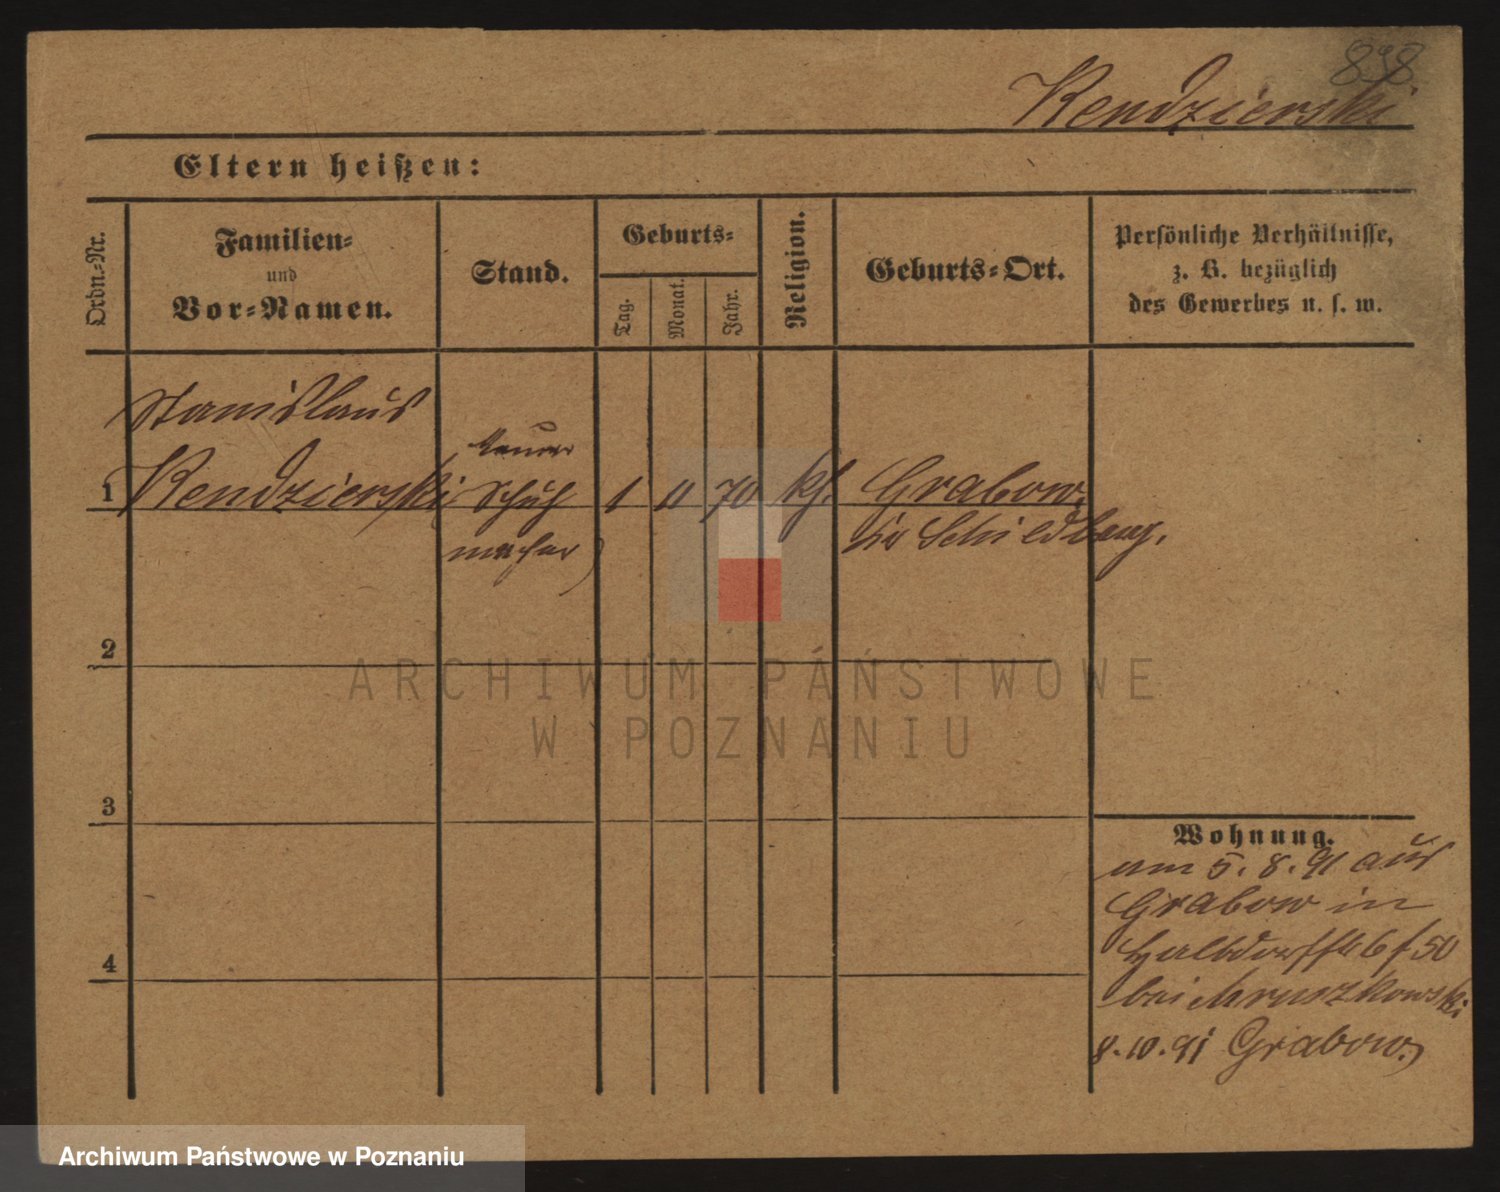 898
Kendzierski
Eltern heißen:
Ordn.-Nr.
Familien-
und
Vor-Namen.
Stand.
Geburts-
Tag.
Monat.
Jahr.
Religion.
Geburts-Ort.
Persönliche Verhältnisse,
z. B. bezüglich
des Gewerbes u. s. w.
Stanislaus
1 Kendzierski
Schuh
macher
1 11 70 kh. Grabow
Kr Schildberg.
2
3
4
Wohnung.
am 5. 8. 91 aus
Grabow in
Halbdorfst
bei Mruszkowski
8.10.91 Grabow
ARCHIWUM PAŃSTWOWE
W POZNANIU
Archiwum Państwowe w Poznaniu